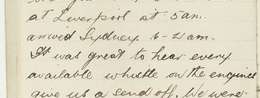 at Liverpool at 5 am.
arrived Sydney 6-21 am.
It was great to hear every
available whistle on the engines
give us a send off. We were